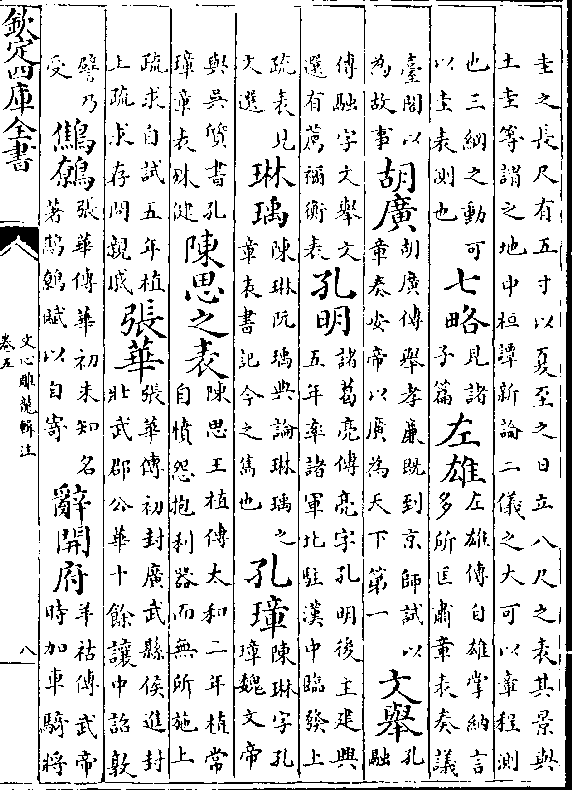 圭之長尺有五寸以夏至之日立八尺之表其景與
土圭等謂之地中桓譚新論二儀之大可以章程測
也三綱之動可
以圭表測也
七略
見諸
子篇
左雄
左雄傳自雄掌納言
多所匡肅章表奏議
臺閣以
為故事
胡廣
胡廣傳舉孝廉既到京師試以
章奏安帝以廣為天下第一
文舉
孔
融
傳融字文舉文
選有薦禰衡表
孔明
諸葛亮傳亮字孔明後主建興
五年率諸軍北駐漢中臨發上
疏表見
文選
琳瑀
陳琳阮瑀典論琳瑀之
章表書記今之雋也
孔璋
陳琳字孔
璋魏文帝
與吳質書孔
璋章表殊健
陳思之表
陳思王植傳太和二年植常
自憤怨抱利器而無所施上
疏求自試五年植
上疏求存問親戚
張華
張華傳初封廣武縣侯進封
壯武郡公華十餘讓中詔敦
譬乃
受
鷦鷯
張華傳華初未知名
著鷦鷯賦以自寄
辭開府
羊祜傳武帝
時加車騎將
欽定四庫全書
文心雕龍輯注
卷五
八